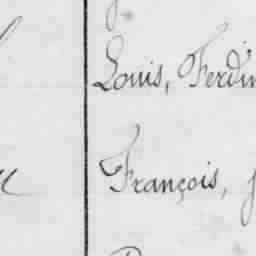 Louis, Ferdin
François,